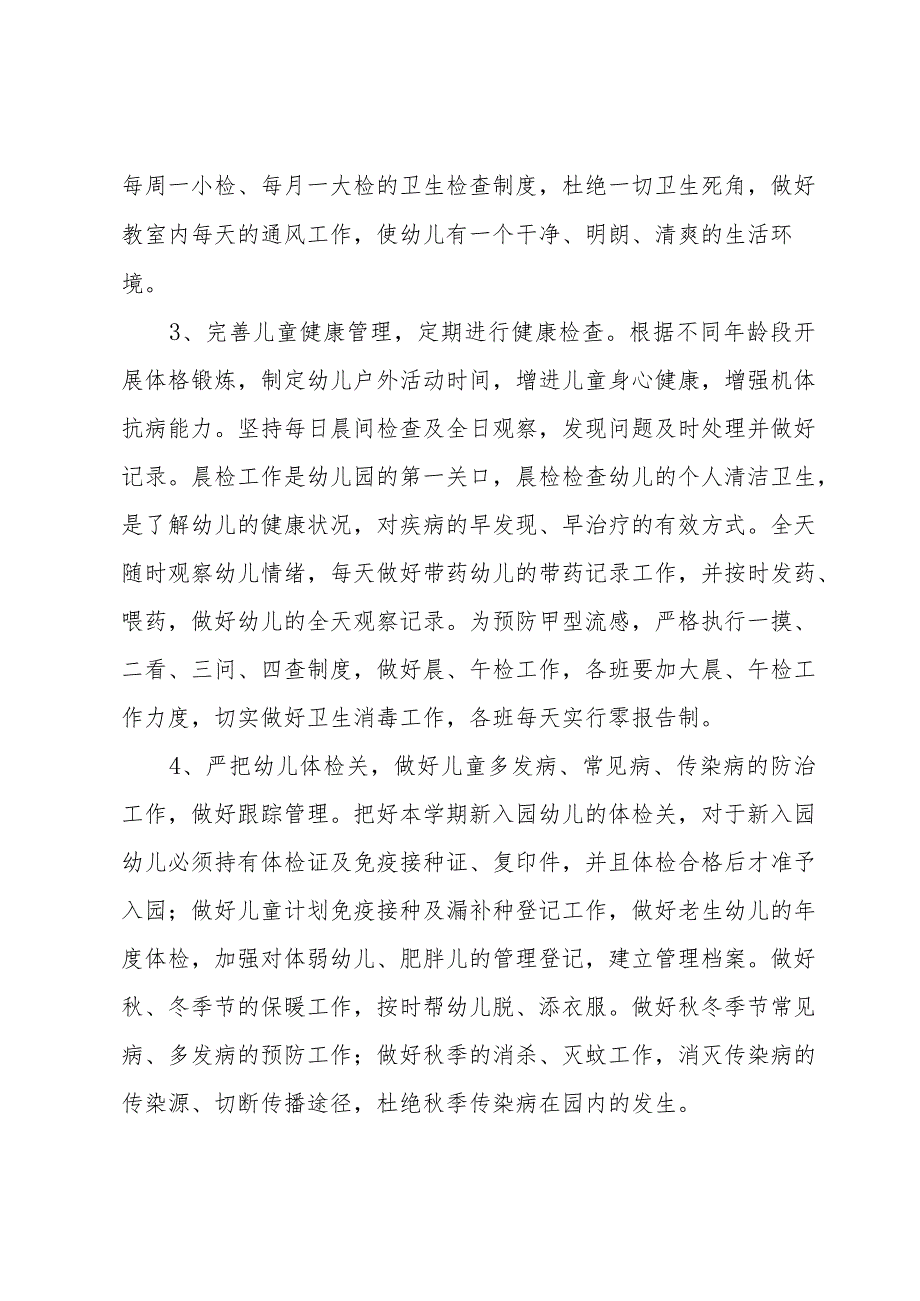 每周一小检、每月一大检的卫生检查制度，杜绝一切卫生死角，做好
教室内每天的通风工作，使幼儿有一个干净、明朗、清爽的生活环
境。
3、完善儿童健康管理，定期进行健康检查。根据不同年龄段开
展体格锻炼，制定幼儿户外活动时间，增进儿童身心健康，增强机体
抗病能力。坚持每日晨间检查及全日观察，发现问题及时处理并做好
记录。晨检工作是幼儿园的第一关口，晨检检查幼儿的个人清洁卫生，
是了解幼儿的健康状况，对疾病的早发现、早治疗的有效方式。全天
随时观察幼儿情绪，每天做好带药幼儿的带药记录工作，并按时发药、
喂药，做好幼儿的全天观察记录。为预防甲型流感，严格执行一摸、
二看、三问、四查制度，做好晨、午检工作，各班要加大晨、午检工
作力度，切实做好卫生消毒工作，各班每天实行零报告制。
4、严把幼儿体检关，做好儿童多发病、常见病、传染病的防治
工作，做好跟踪管理。把好本学期新入园幼儿的体检关，对于新入园
幼儿必须持有体检证及免疫接种证、复印件，并且体检合格后才准予
入园；做好儿童计划免疫接种及漏补种登记工作，做好老生幼儿的年
度体检，加强对体弱幼儿、肥胖儿的管理登记，建立管理档案。做好
秋、冬季节的保暖工作，按时帮幼儿脱、添衣服。做好秋冬季节常见
病、多发病的预防工作；做好秋季的消杀、灭蚊工作，消灭传染病的
传染源、切断传播途径，杜绝秋季传染病在园内的发生。